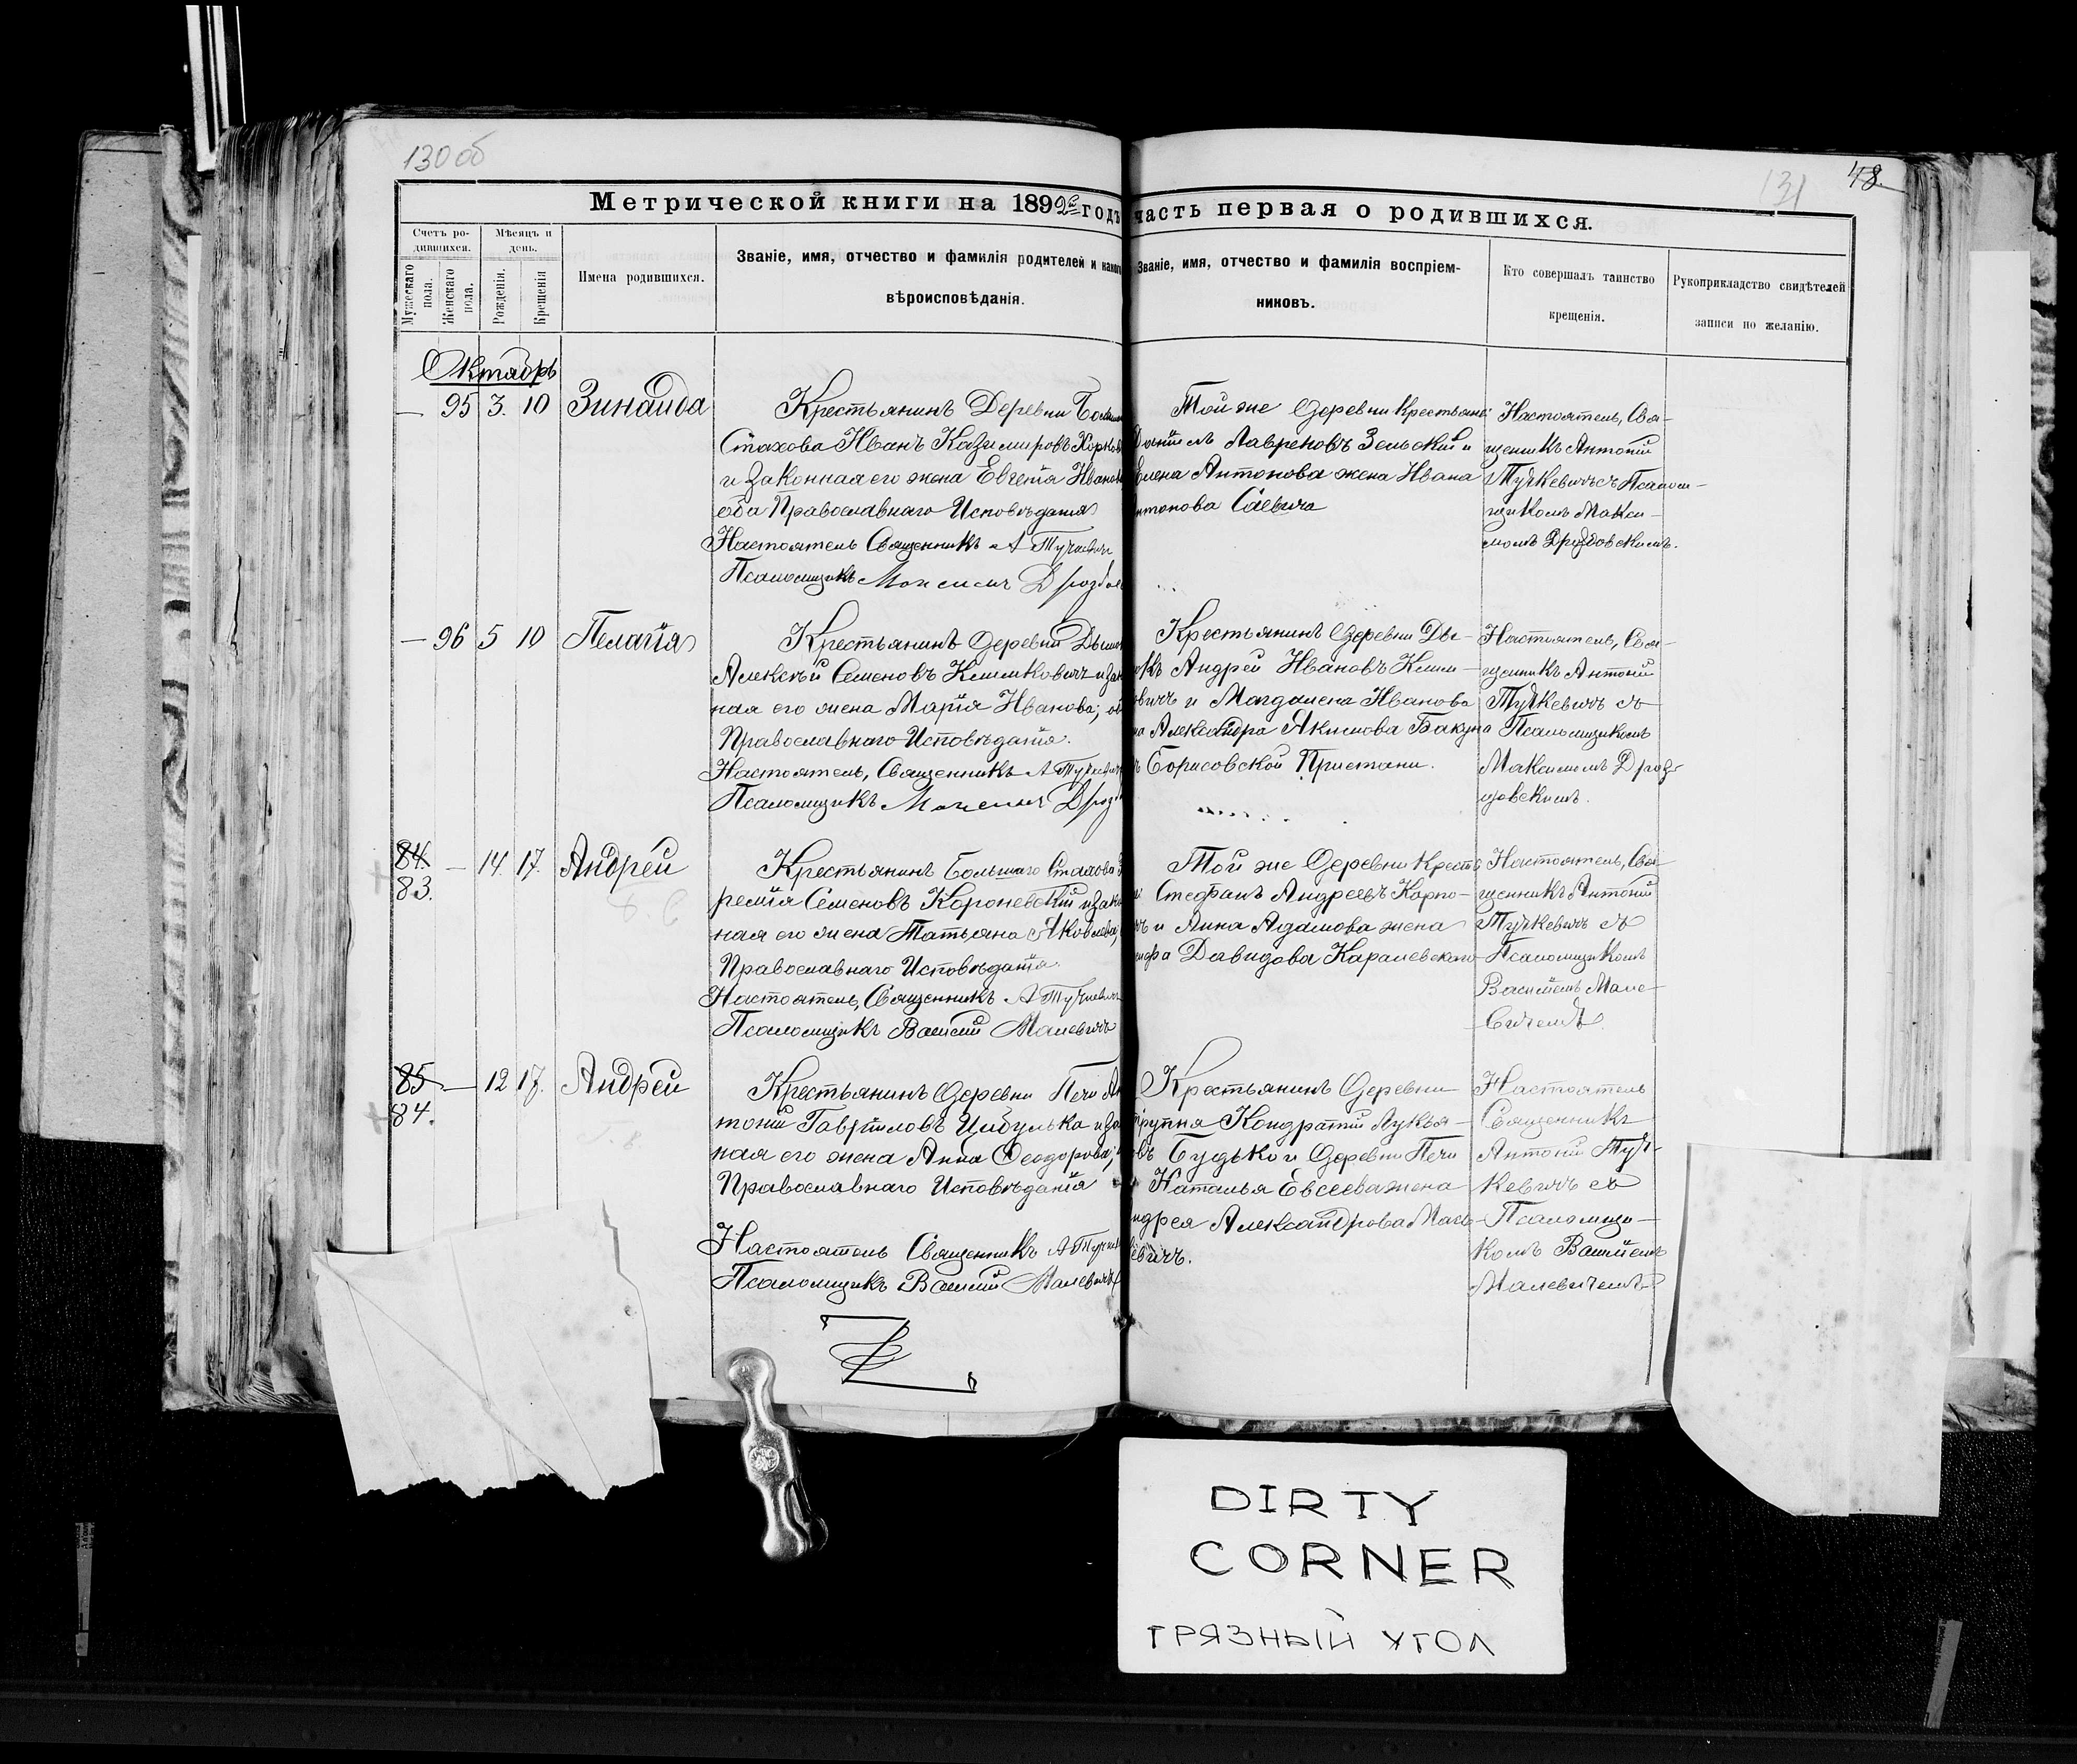 130 об
131
48.
Метрической книги на 1892й годъ
часть первая о родившихся.
Счетъ ро-
дившихся.
Мѣсяцъ и
день.
Мужескаго
пола.
Женскаго
пола.
Рожденія.
Крещенія
Имена родившихся.
Званіе, имя, отчество и фамилія родителей и какого
вѣроисповѣданія.
Званіе, имя, отчество и фамилія воспріем-
никовъ.
Кто совершалъ таинство
крещенія.
Рукоприкладство свидѣтелей
записи по желанію.
Октябрь
— 95 3. 10 Зинаида
Крестьянинъ Деревни
Стахова Иванъ Казимировъ
и законная его жена Евгенія
оба Православнаго Исповѣданія
Настоятель Священникъ А Тучкевичъ
Псаломщикъ Максимъ
Той же Деревни
Лавреновъ Зельскій и
Елена Антонова жена Ивана
Саевича
Настоятель, Свя-
щенникъ Антоній
Тучкевичъ съ Псалом-
щикомъ Макси-
момъ Дроздовскимъ.
— 96 5 10 Пелагія
Крестьянинъ Деревни
Алексѣй Семеновъ Климковичъ
ная его жена Марія Иванова;
Православнаго Исповѣданія.
Настоятель, Священникъ А Тучкевичъ
Псаломщикъ Максимъ
Крестьянинъ Деревни Ды-
Андрей Ивановъ Клим-
и Магдалена Иванова
Александра Якимова Бакуна
Борисовской Пристани.
Настоятель, Свя-
щенникъ Антоній
Тучкевичъ съ
Псаломщикомъ
Максимомъ Дроз-
довскимъ.
84. — 14. 17. Андрей
83.
Крестьянинъ Большаго Стахова
Семеновъ Короневскій
ная его жена Татьяна Яковлева,
Православнаго Исповѣданія.
Настоятель, Священникъ А Тучкевичъ
Псаломщикъ Василій Малевичъ
Той же Деревни
Стефанъ Андреевъ Карпо-
и Анна Адамова жена
Давидова Каралевскаго
Настоятель, Свя-
щенникъ Антоній
Тучкевичъ съ
Псаломщикомъ
Василіемъ Мале-
вичемъ.
85 — 12 17. Андрей
84.
Крестьянинъ Деревни Печи Ан
тоній Гавріиловъ Цыбулька
ная его жена Анна Ѳеодорова;
Православнаго Исповѣданія
Настоятель Священникъ А Тучкевичъ
Псаломщикъ Василій Малевичъ
Крестьянинъ Деревни
Кондратій Лукья-
Будько и Деревни Печи
Наталья Евсеева жена
Александрова Мась-
евичъ.
Настоятель
Священникъ
Антоній Туч-
кевичъ съ
Псаломщи-
комъ Василіемъ
Малевичемъ
DIRTY
CORNER
ГРЯЗНЫЙ УГОЛ